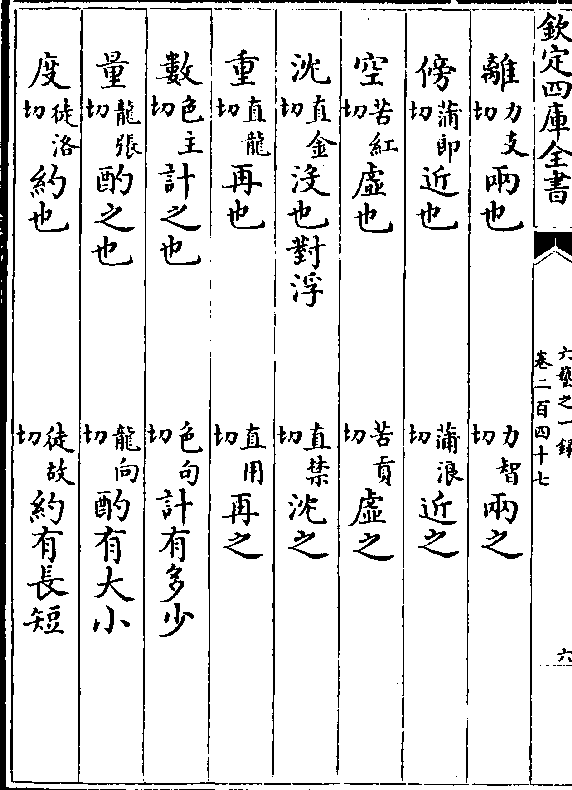 欽定四庫全書
六藝之一錄
卷二百四十七
六
離力支切兩也 力智切兩之
傍蒲郎切近也 蒲浪切近之
空苦紅切虛也 苦貢切虛之
沈直金切沒也對浮 直禁切沈之
重直龍切再也 直用切再之
數色主切計之也 色句切計有多少
量龍張切酌之也 龍向切酌有大小
度徒洛切約也 徒故切約有長短